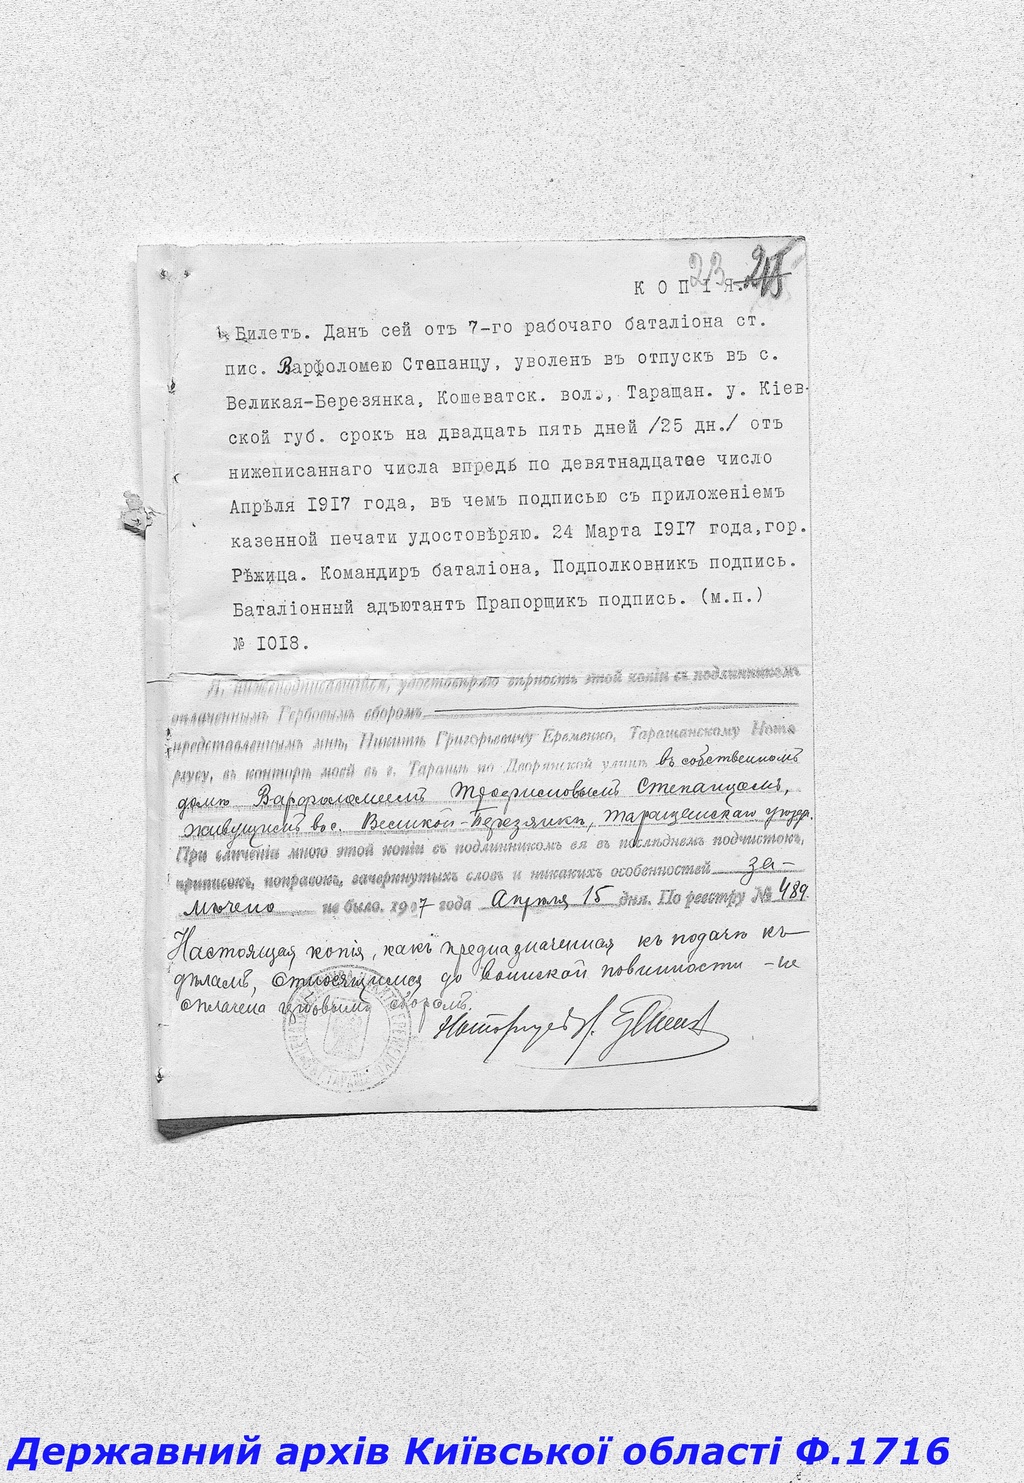 23 25
КОПІЯ.
Билетъ. Данъ сей отъ 7-го рабочаго баталіона ст.
пис. Варфоломею Степанцу, уволенъ въ отпускъ въ с.
Великая-Березянка, Кошеватск. вол., Таращан. у. Кіев-
ской губ. срокъ на двадцать пять дней /25 дн./ отъ
нижеписаннаго числа впредь по девятнадцатае число
Апрѣля 1917 года, въ чемъ подписью съ приложеніемъ
казенной печати удостовѣряю. 24 Марта 1917 года, гор.
Рѣжица. Командиръ баталіона, Подполковникъ подпись.
Баталіонный адъютантъ Прапорщикъ подпись. (м.п.)
№ 1018.
Я, нижеподписавшійся, удостовѣряю вѣрность этой копіи съ подлинникомъ
оплаченнымъ Гербовымъ сборомъ
представленнымъ мнѣ, Никитѣ Григорьевичу Еременко, Таращанскому Нота
ріусу, въ конторѣ моей въ г. Таращѣ по Дворянской улицѣ въ собственномъ
домѣ Варфоломеемъ Степанцомъ,
живущимъ въ с. Великой-Березянкѣ, Таращанскаго уѣзда.
При сличеніи мною этой копіи съ подлинникомъ ея въ послѣднемъ подчистокъ,
приписокъ, поправокъ, зачеркнутыхъ словъ и никакихъ особенностей за-
мѣчено не было. 1917 года Апрѣля 15 дня. По реестру № 489
Настоящая копія, какъ предназначенная къ подачѣ къ
дѣламъ, относящимся до воинской повинности - не
оплачена гербовымъ сборомъ.
Нотаріусъ Н. Еременко
Державний архів Київської області Ф.1716